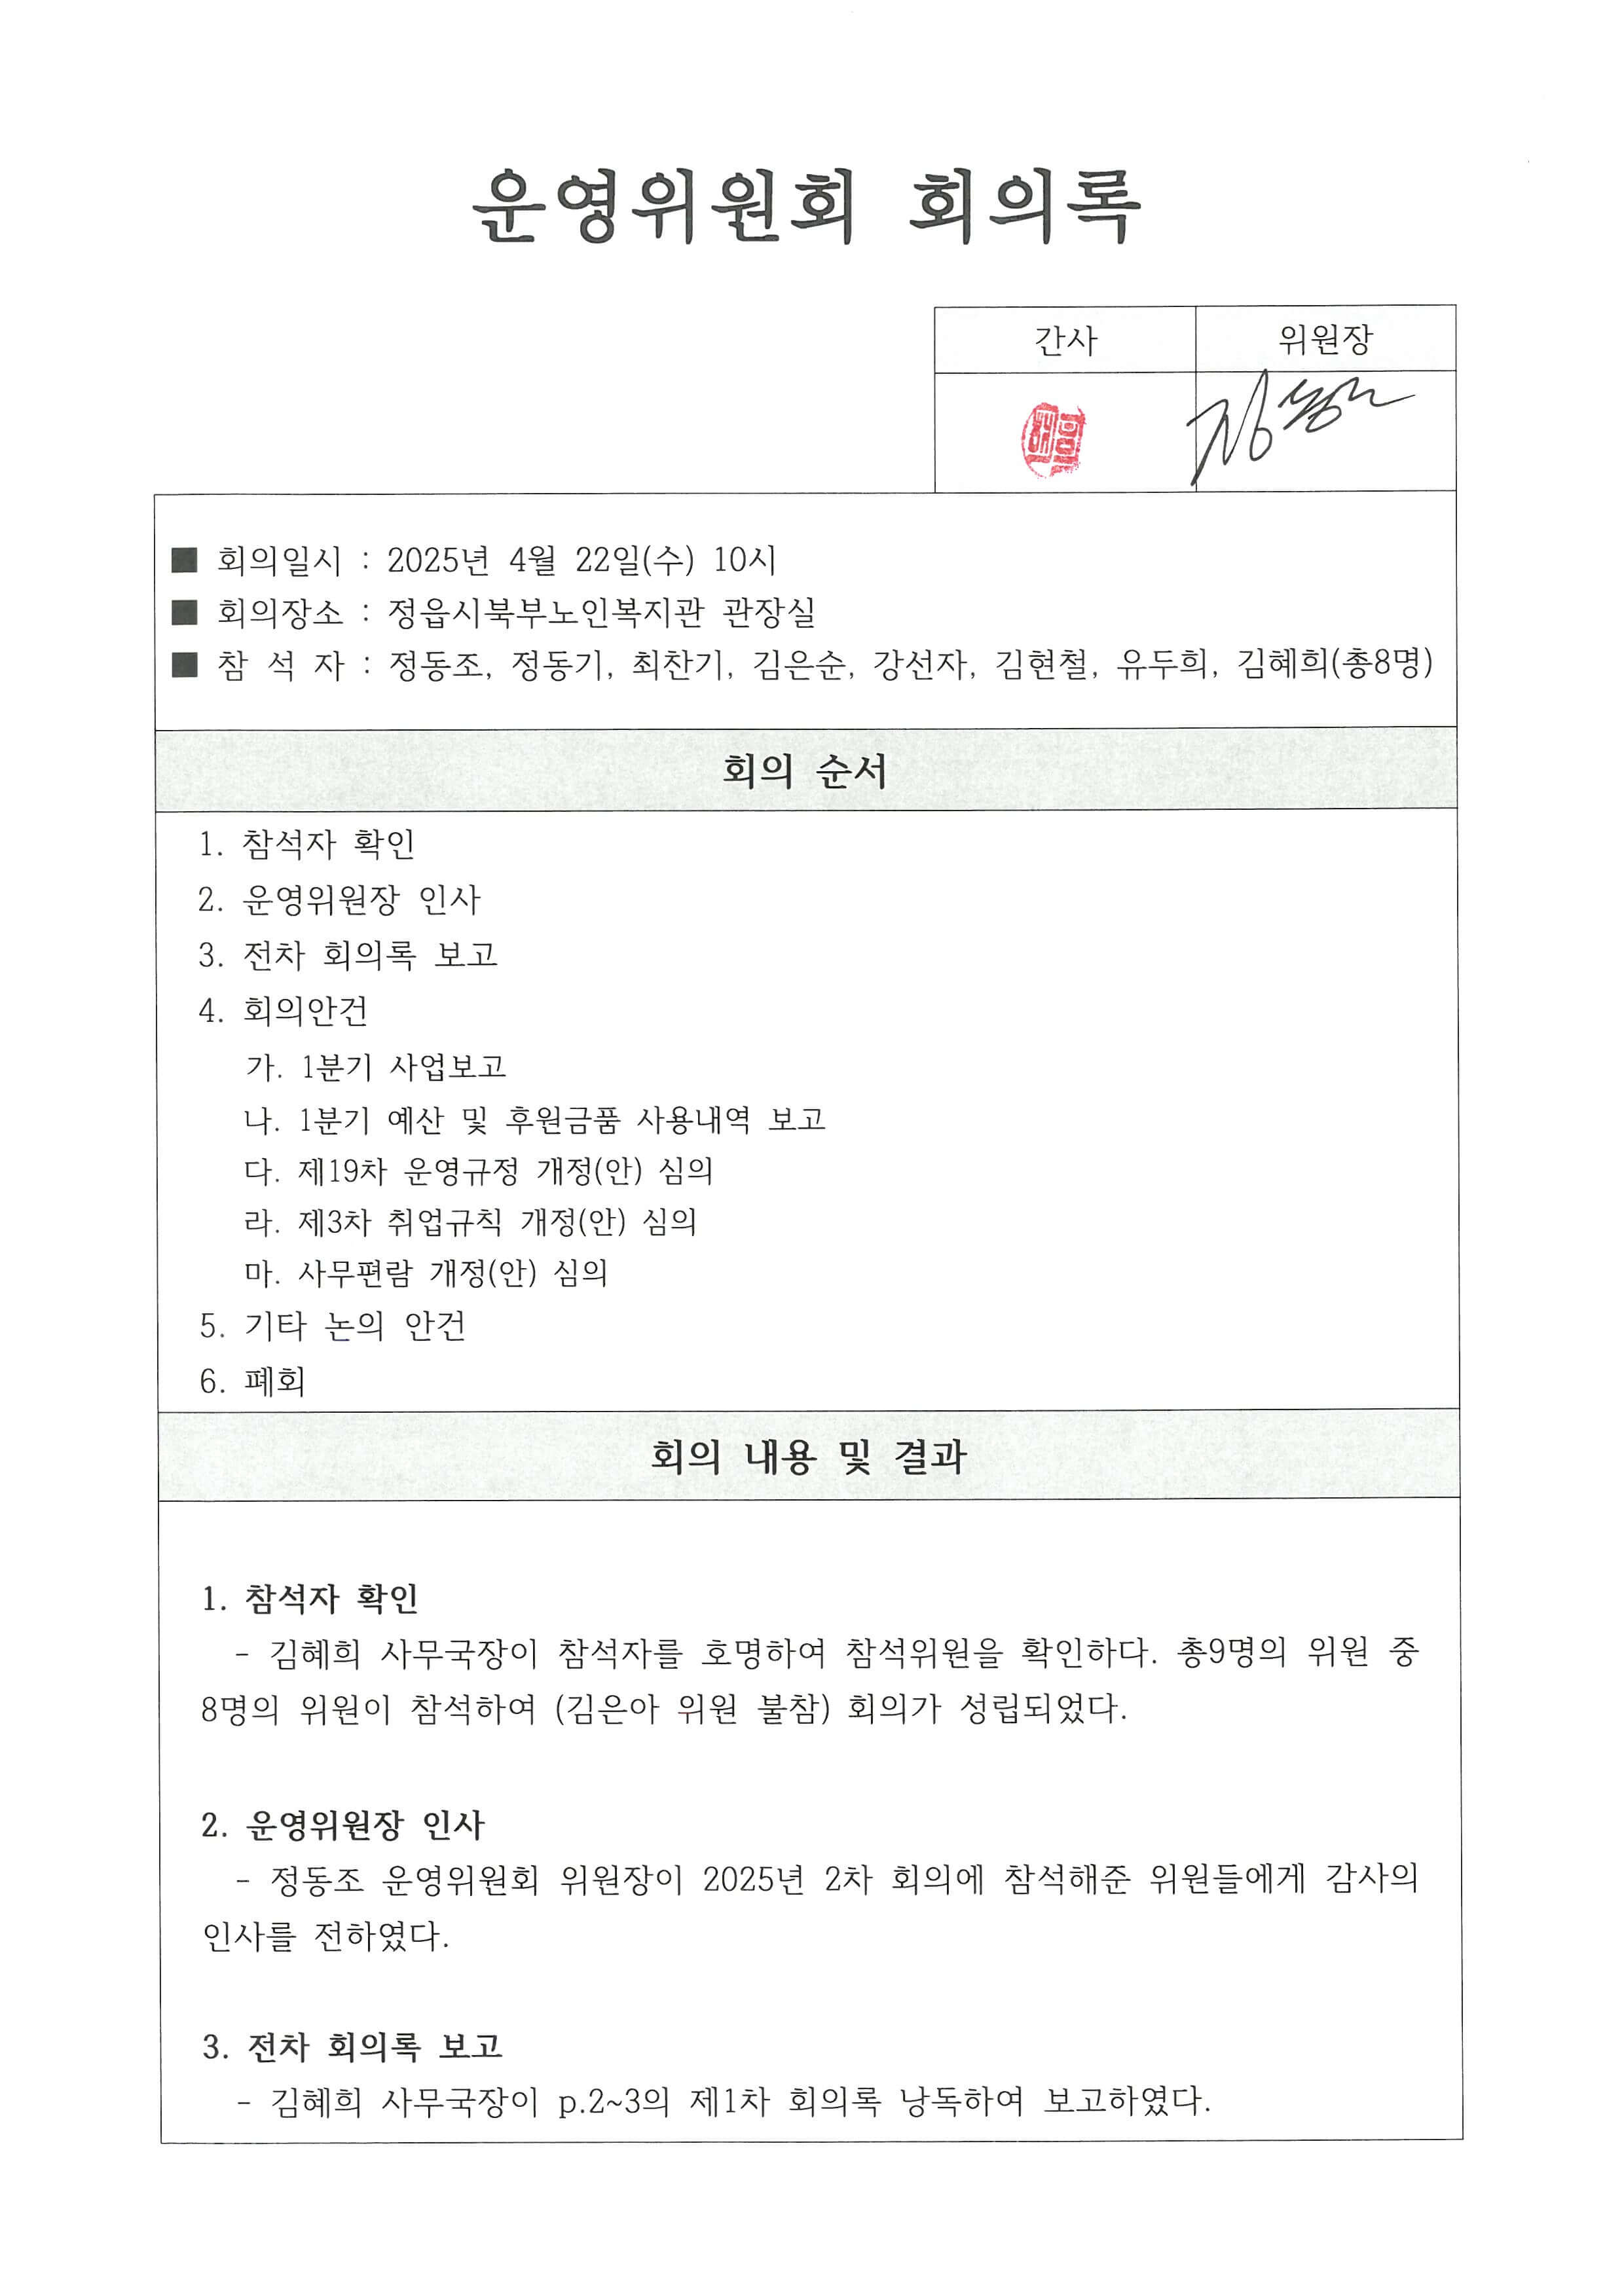 운영위원회 회의록
간사 위원장
정동조
■ 회의일시 : 2025년 4월 22일(수) 10시
■ 회의장소 : 정읍시북부노인복지관 관장실
■ 참 석 자 : 정동조, 정동기, 최찬기, 김은순, 강선자, 김현철, 유두희, 김혜희(총8명)
회의 순서
1. 참석자 확인
2. 운영위원장 인사
3. 전차 회의록 보고
4. 회의안건
가. 1분기 사업보고
나. 1분기 예산 및 후원금품 사용내역 보고
다. 제19차 운영규정 개정(안) 심의
라. 제3차 취업규칙 개정(안) 심의
마. 사무편람 개정(안) 심의
5. 기타 논의 안건
6. 폐회
회의 내용 및 결과
1. 참석자 확인
- 김혜희 사무국장이 참석자를 호명하여 참석위원을 확인하다. 총9명의 위원 중
8명의 위원이 참석하여 (김은아 위원 불참) 회의가 성립되었다.
2. 운영위원장 인사
- 정동조 운영위원회 위원장이 2025년 2차 회의에 참석해준 위원들에게 감사의
인사를 전하였다.
3. 전차 회의록 보고
- 김혜희 사무국장이 p.2~3의 제1차 회의록 낭독하여 보고하였다.